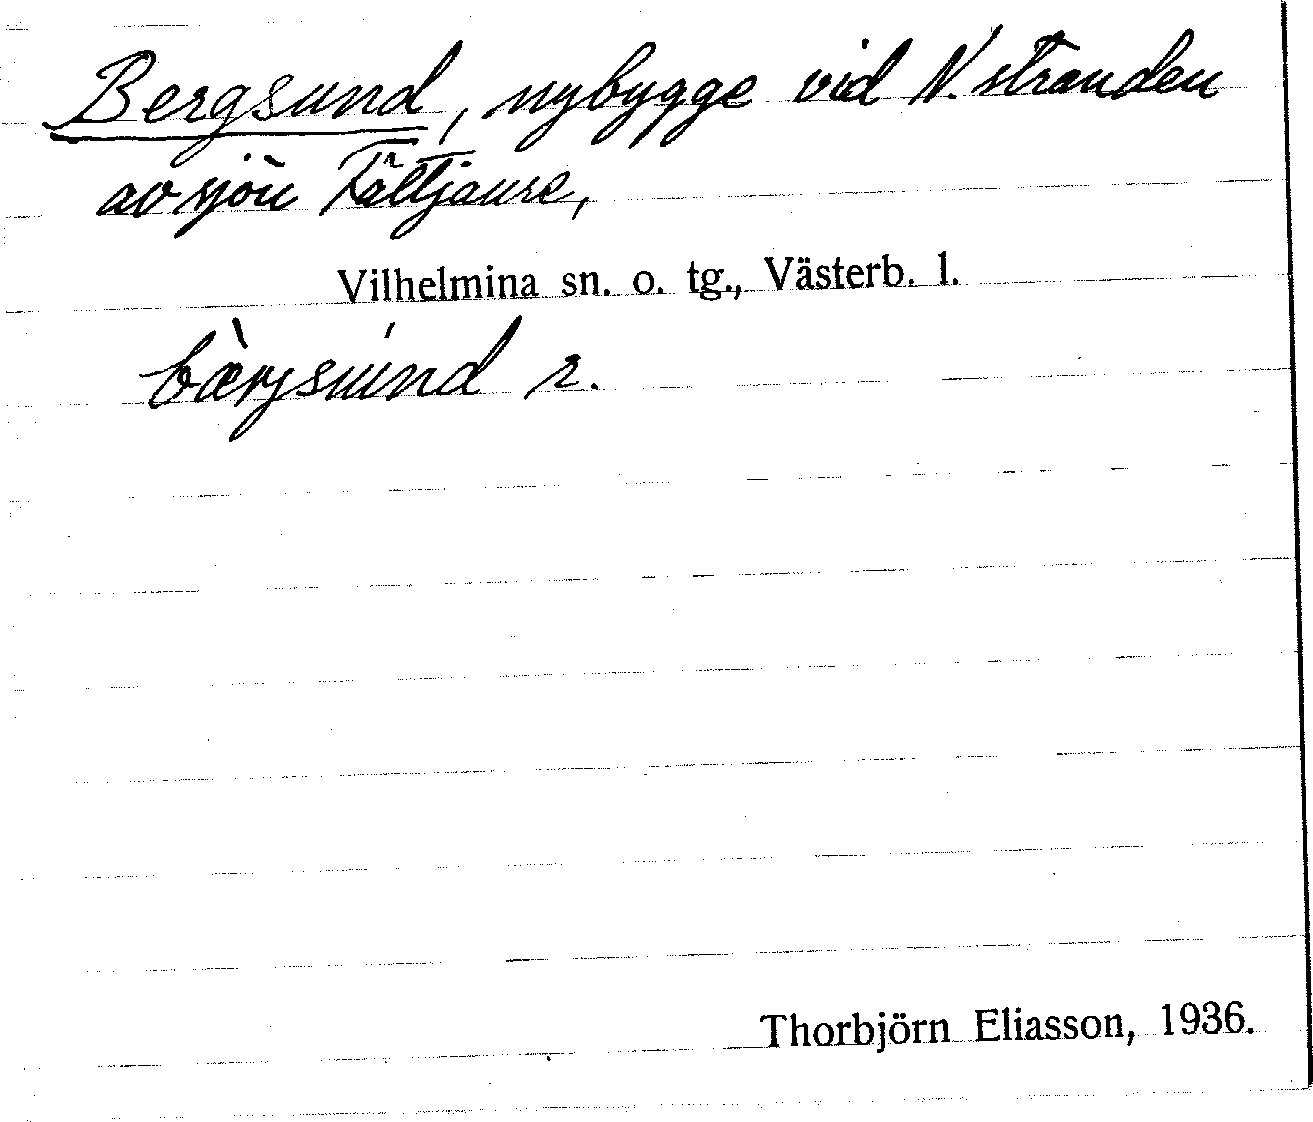 Bergsund, nybygge vid N. stranden
av sjön Fättjaure,
Vilhelmina sn. o. tg., Västerb. l.
bærjsund
Thorbjörn Eliasson, 1936.